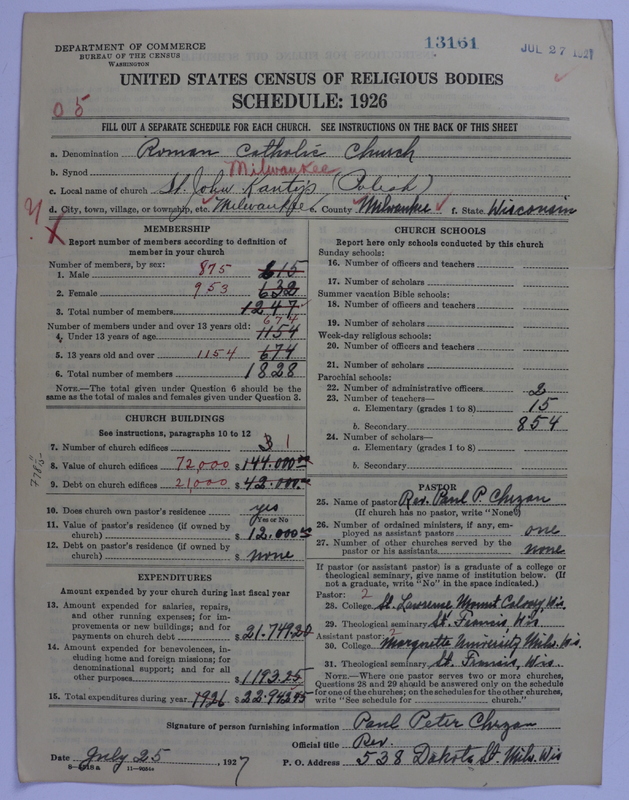 DEPARTMENT OF COMMERCE
BUREAU OF THE CENSUS
WASHINGTON
13161
JUL 27 1927
UNITED STATES CENSUS OF RELIGIOUS BODIES
SCHEDULE: 1926
05
FILL OUT A SEPARATE SCHEDULE FOR EACH CHURCH. SEE INSTRUCTIONS ON THE BACK OF THIS SHEET
a. Denomination Roman Catholic Church
b. Synod Milwaukee
c. Local name of church St. John Kantys (Polish)
d. City, town, village, or township, etc. Milwaukee e. County Milwaukee f. State Wisconsin
MEMBERSHIP
Report number of members according to definition of member in your church
Number of members, by sex:
1. Male 875 615
2. Female 953 632
3. Total number of members 1247
Number of members under and over 13 years old:
4. Under 13 years of age 674 1154
5. 13 years old and over 1154 674
6. Total number of members 1828
NOTE.—The total given under Question 6 should be the same as the total of males and females given under Question 3.
CHURCH BUILDINGS
See instructions, paragraphs 10 to 12
7. Number of church edifices 3 1
8. Value of church edifices 72,000 $ 144.000
9. Debt on church edifices 21,000 $ 42.000
10. Does church own pastor's residence yes
(Yes or No)
11. Value of pastor's residence (if owned by church) $ 12.000
12. Debt on pastor's residence (if owned by church) $ none
EXPENDITURES
Amount expended by your church during last fiscal year
13. Amount expended for salaries, repairs, and other running expenses; for improvements or new buildings; and for payments on church debt $ 21.749.20
14. Amount expended for benevolences, including home and foreign missions; for denominational support; and for all other purposes $ 1193.25
15. Total expenditures during year 1926 $ 22.942.45
CHURCH SCHOOLS
Report here only schools conducted by this church
Sunday schools:
16. Number of officers and teachers
17. Number of scholars
Summer vacation Bible schools:
18. Number of officers and teachers
19. Number of scholars
Week-day religious schools:
20. Number of officers and teachers
21. Number of scholars
Parochial schools:
22. Number of administrative officers 2
23. Number of teachers—
a. Elementary (grades 1 to 8) 15
b. Secondary 854
24. Number of scholars—
a. Elementary (grades 1 to 8)
b. Secondary
PASTOR
25. Name of pastor Rev. Paul P. Chrzan
(If church has no pastor, write "None")
26. Number of ordained ministers, if any, employed as assistant pastors one
27. Number of other churches served by the pastor or his assistants none
If pastor (or assistant pastor) is a graduate of a college or theological seminary, give name of institution below. (If not a graduate, write "No" in the space indicated.)
Pastor: 2
28. College St. Lawrence Mount Calvary, Wis.
29. Theological seminary St. Francis, Wis.
Assistant pastor: 2
30. College Marquette University Milw. Wis.
31. Theological seminary St. Francis, Wis.
NOTE.—Where one pastor serves two or more churches, Questions 28 and 29 should be answered only on the schedule for one of the churches; on the schedules for the other churches, write "See schedule for church."
Signature of person furnishing information Paul Peter Chrzan
Official title Rev.
Date July 25, 1927
P. O. Address 538 Dakota St. Milw. Wis